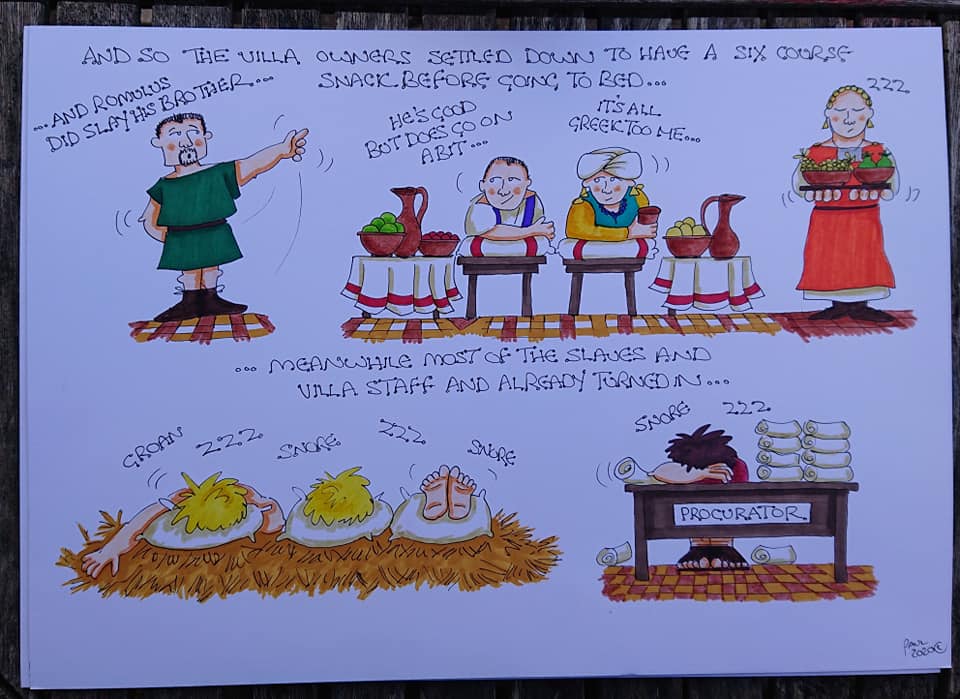 AND SO THE VILLA OWNERS SETTLED DOWN TO HAVE A SIX COURSE
SNACK BEFORE GOING TO BED...
...AND ROMULUS
DID SLAY HIS BROTHER...
HE'S GOOD
BUT DOES GO ON
A BIT...
IT'S ALL
GREEK TOO ME...
ZZZ
...MEANWHILE MOST OF THE SLAVES AND
VILLA STAFF AND ALREADY TURNED IN...
GROAN
ZZZ
SNORE
ZZZ
SNORE
SNORE
ZZZ
PROCURATOR
PAUL
2020CE